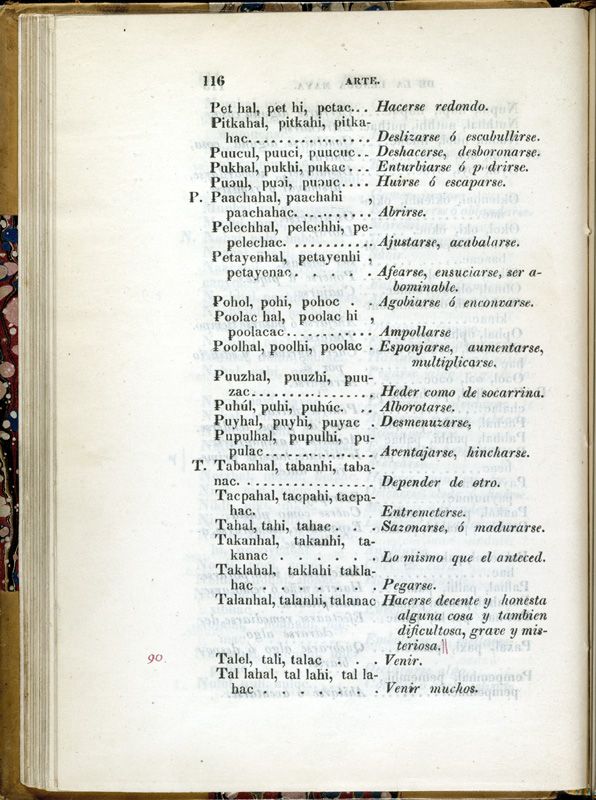 116 ARTE.
Pet hal, pet hi, petac... Hacerse redondo.
Pitkahal, pitkahi, pitka-
hac................. Deslizarse ó escabullirse.
Puucul, puuci, puucuc.. Deshacerse, desboronarse.
Pukhal, pukhi, pukac... Enturbiarse ó p drirse.
Puɔul, puɔi, puɔuc.... Huirse ó escaparse.
P. Paachahal, paachahi ,
paachahac. ......... Abrirse.
Pelechhal, pelechhi, pe-
pelechac. ........... Ajustarse, acabalarse.
Petayenhal, petayenhi ,
petayenac. . . . . . Afearse, ensuciarse, ser a-
bominable.
Pohol, pohi, pohoc . . Agobiarse ó enconvarse.
Poolac hal, poolac hi ,
poolacac............ Ampollarse
Poolhal, poolhi, poolac . Esponjarse, aumentarse,
multiplicarse.
Puuzhal, puuzhi, puu-
zac................ Heder como de socarrina.
Puhúl, puhi, puhúc. .. Alborotarse.
Puyhal, puyhi, puyac . Desmenuzarse,
Pupulhal, pupulhi, pu-
pulac............... Aventajarse, hincharse.
T. Tabanhal, tabanhi, taba-
nac. ................ Depender de otro.
Tacpahal, tacpahi, tacpa-
hac. Entremeterse.
Tahal, tahi, tahac . . . Sazonarse, ó madurarse.
Takanhal, takanhi, ta-
kanac . . . . . . Lo mismo que el anteced.
Taklahal, taklahi takla-
hac . . . . . . . Pegarse.
Talanhal, talanhi, talanac Hacerse decente y honesta
alguna cosa y tambien
dificultosa, grave y mis-
teriosa.
90 Talel, tali, talac . . . Venir.
Tal lahal, tal lahi, tal la-
hac . . . . . . . Venir muchos.